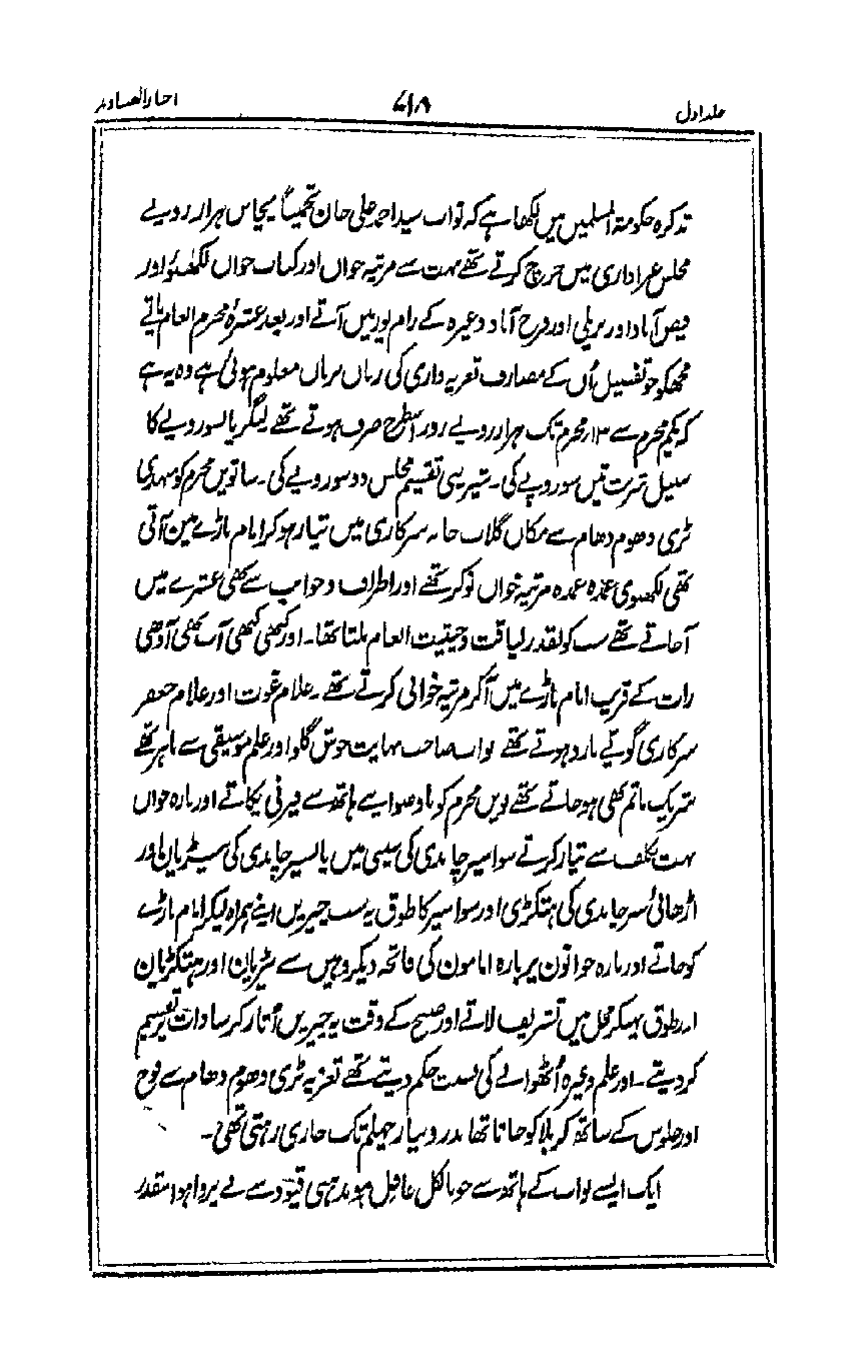 جلد اول ۷۱۸ اخبار الصنادید
تذکرہ حکومۃ المسلمین میں لکھا ہے کہ نواب سید احمد علی خان تخمیناً پچاس ہزار روپے
مجلس عزاداری میں خرچ کرتے تھے بہت سے مرثیہ خواں اور کتاب خواں لکھنؤ اور
فیض آباد اور بریلی اور فرخ آباد وغیرہ کے رام پور میں آتے اور بعد عشرۂ محرم انعام پاتے
مجھکو جو تفصیل اُن کے مصارف تعزیہ داری کی زبان زبان معلوم ہوئی ہے وہ یہ ہے
کہ یکم محرم سے ۱۳ محرم تک ہزار روپے روز اسطرح صرف ہوتے تھے لنگر پانسو روپے کا
سبیل شربت تین سو روپے کی۔ شیرینی تقسیم مجلس دو سو روپے کی۔ ساتویں محرم کو مہدی
بڑی دھوم دھام سے مکان گلاب خانہ سرکاری میں تیار ہو کر امام باڑے مین آتی
تھی لکھنوی عمدہ عمدہ مرثیہ خواں نوکر تھے اور اطراف و جوانب سے بھی عشرے میں
آجاتے تھے سب کو بقدر لیاقت و حیثیت انعام ملتا تھا۔ اور کبھی کبھی آپ بھی آدھی
رات کے قریب امام باڑے میں آکر مرثیہ خوانی کرتے تھے۔ غلام غوث اور غلام جعفر
سرکاری گویّے بازو ہوتے تھے نواب صاحب نہایت خوش گلو اور علم موسیقی سے ماہر تھے
شریک ماتم بھی ہو جاتے تھے نویں محرم کو باوضو اپنے ہاتھ سے فیرنی پکاتے اور بارہ خواں
بہت تکلف سے تیار کرتے سوا سیر چاندی کی سیسی میں پانسیر چاندی کی بیڑیاں اور
اڑھائی سیر چاندی کی ہتکڑی اور سوا سیر کا طوق یہ سب چیزیں اپنے ہمراہ لیکر امام باڑے
کو جاتے اور بارہ خوانون پر بارہ امامون کی فاتحہ دیکر وہیں سے بیڑیان اور ہتکڑیان
اور طوق پہنکر محل میں تشریف لاتے اور صبح کے وقت یہ چیزیں اُتار کر سادات پر تقسیم
کر دیتے۔ اور علم وغیرہ اُٹھوانے کی نسبت حکم دیتے تھے تعزیہ بڑی دھوم دھام سے فوج
اور جلوس کے ساتھ کربلا کو جاتا تھا نذر و نیاز چہلم تک جاری رہتی تھی۔
ایک ایسے نواب کے ہاتھ سے جو بالکل غافل ہو مذہبی قیود سے بے پروا ہو اسقدر